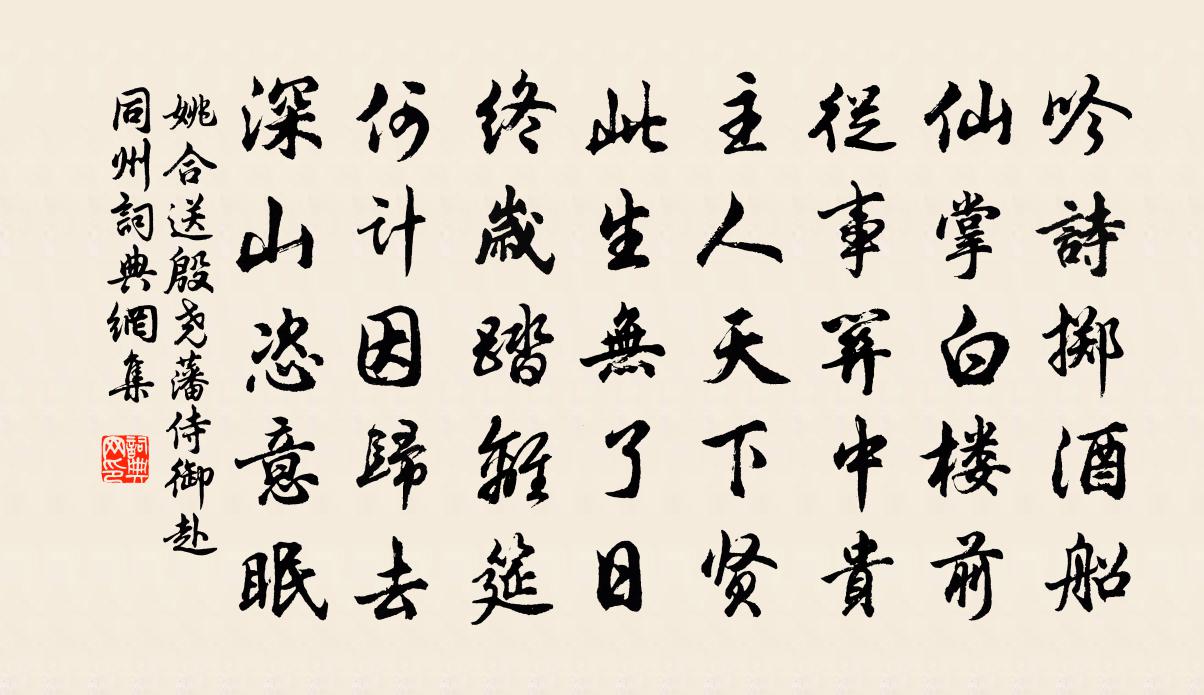 吟詩擲酒船
仙掌白楼前
從事關中貴
主人天下贤
此生無了日
终歲踏離筵
何计因歸去
深山恣意眠
姚合送殷尧藩侍御赴
同州詞典網集
詞典网印